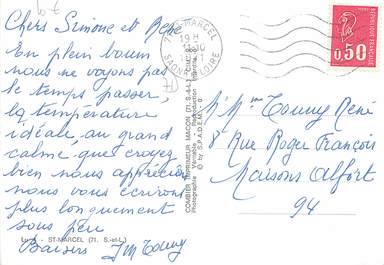 Chers Simone et René
En plein boum
nous ne voyons pas
le temps passer,
la température
idéale, au grand
calme, que croyez
bien nous apprécions
nous vous écrirons
plus longuement
sous peu
Baisers JM Touny
ST-MARCEL (71. S.-et-L.)
COMBIER IMPRIMEUR MACON (71. S.-&-L.)
Photographie Véritable - Reproduction Interdite
© by S.P.A.D.E.M.
71 ST-MARCEL
19 H
SAONE ET LOIRE
REPUBLIQUE FRANÇAISE
0,50
M. Mme Touny René
8 Rue Roger François
Maisons Alfort
94